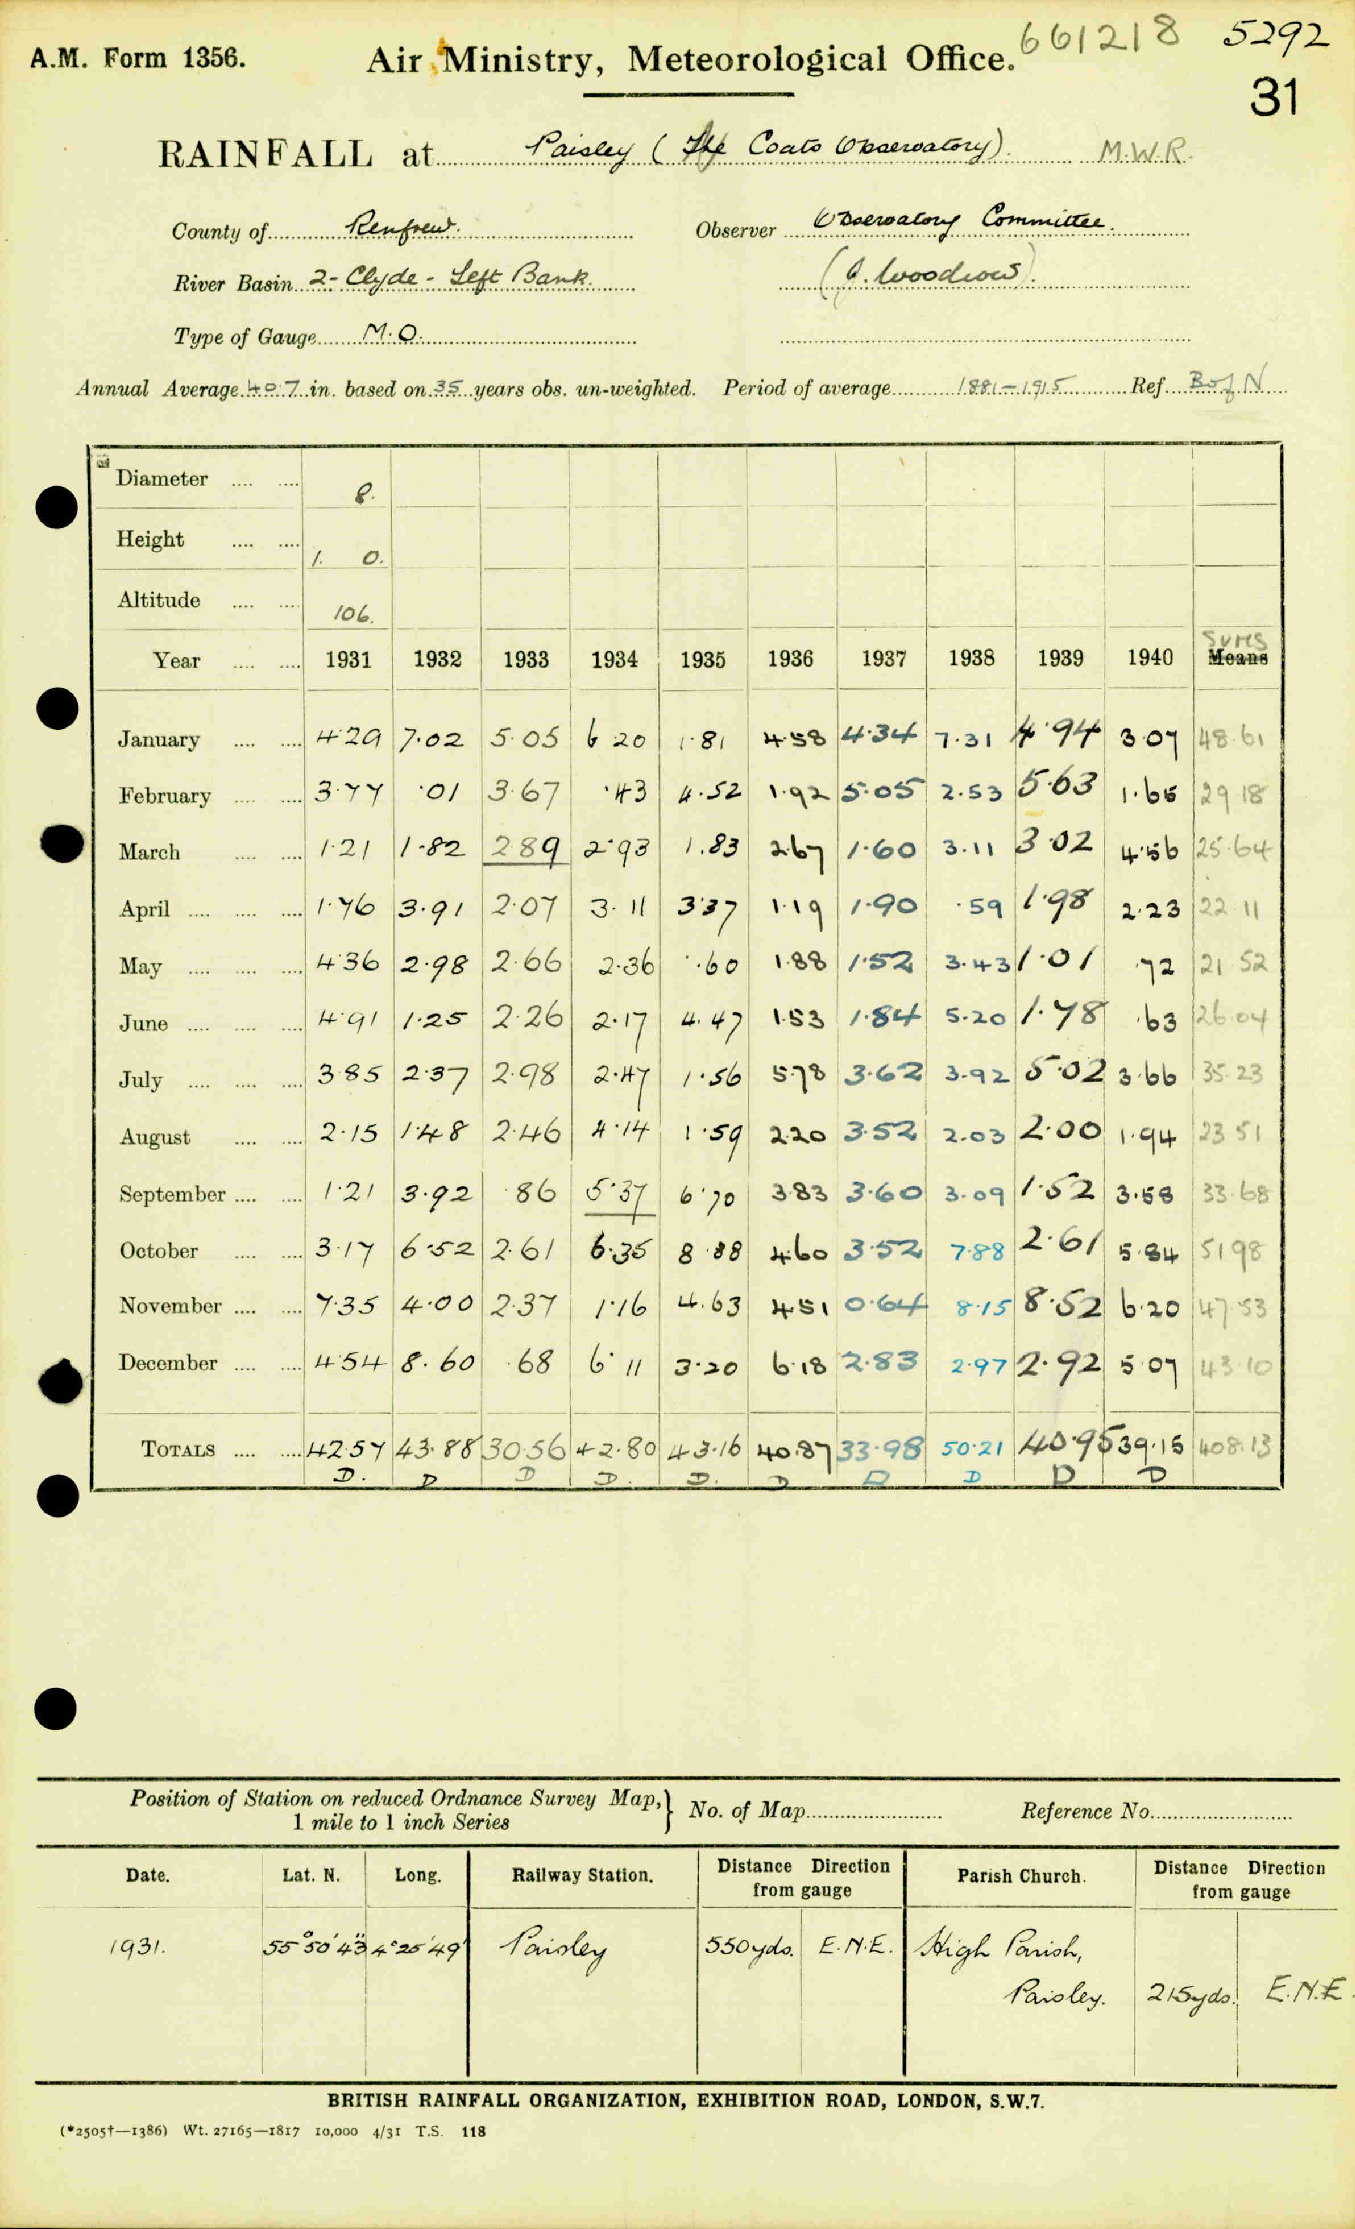 661218 5292
A.M. Form 1356. Air Ministry, Meteorological Office.
31
RAINFALL at Paisley (The Coats Observatory) M.W.R.
County of Renfrew. Observer Observatory Committee.
River Basin 2 - Clyde - Left Bank. (J. Woodrow).
Type of Gauge M.O.
Annual Average 40.7 in. based on 35 years obs. un-weighted. Period of average 1881-1915 Ref. B of N
Diameter 8.
Height 1. 0.
Altitude 106.
Sums
Year 1931 1932 1933 1934 1935 1936 1937 1938 1939 1940 Means
January 4.29 7.02 5.05 6.20 1.81 4.58 4.34 7.31 4.94 3.07 48.61
February 3.77 .01 3.67 .43 4.52 1.92 5.05 2.53 5.63 1.65 29.18
March 1.21 1.82 2.89 2.93 1.83 2.67 1.60 3.11 3.02 4.56 25.64
April 1.76 3.91 2.07 3.11 3.37 1.19 1.90 .59 1.98 2.23 22.11
May 4.36 2.98 2.66 2.36 .60 1.88 1.52 3.43 1.01 .72 21.52
June 4.91 1.25 2.26 2.17 4.47 1.53 1.84 5.20 1.78 .63 26.04
July 3.85 2.37 2.98 2.47 1.56 5.78 3.62 3.92 5.02 3.66 35.23
August 2.15 1.48 2.46 4.14 1.59 2.20 3.52 2.03 2.00 1.94 23.51
September 1.21 3.92 .86 5.37 6.70 3.83 3.60 3.09 1.52 3.58 33.68
October 3.17 6.52 2.61 6.35 8.88 4.60 3.52 7.88 2.61 5.84 51.98
November 7.35 4.00 2.37 1.16 4.63 4.51 0.64 8.15 8.52 6.20 47.53
December 4.54 8.60 .68 6.11 3.20 6.18 2.83 2.97 2.92 5.07 43.10
TOTALS 42.57 43.88 30.56 42.80 43.16 40.87 33.98 50.21 40.95 39.15 408.13
D. D D D. D. D D D D D
Position of Station on reduced Ordnance Survey Map, 1 mile to 1 inch Series } No. of Map Reference No.
Date. Lat. N. Long. Railway Station. Distance Direction from gauge Parish Church. Distance Direction from gauge
1931. 55°50'43" 4°25'49" Paisley 550 yds. E.N.E. High Parish,
Paisley. 215 yds. E.N.E.
BRITISH RAINFALL ORGANIZATION, EXHIBITION ROAD, LONDON, S.W.7.
(*2505†—1386) Wt. 27165—1817 10,000 4/31 T.S. 118